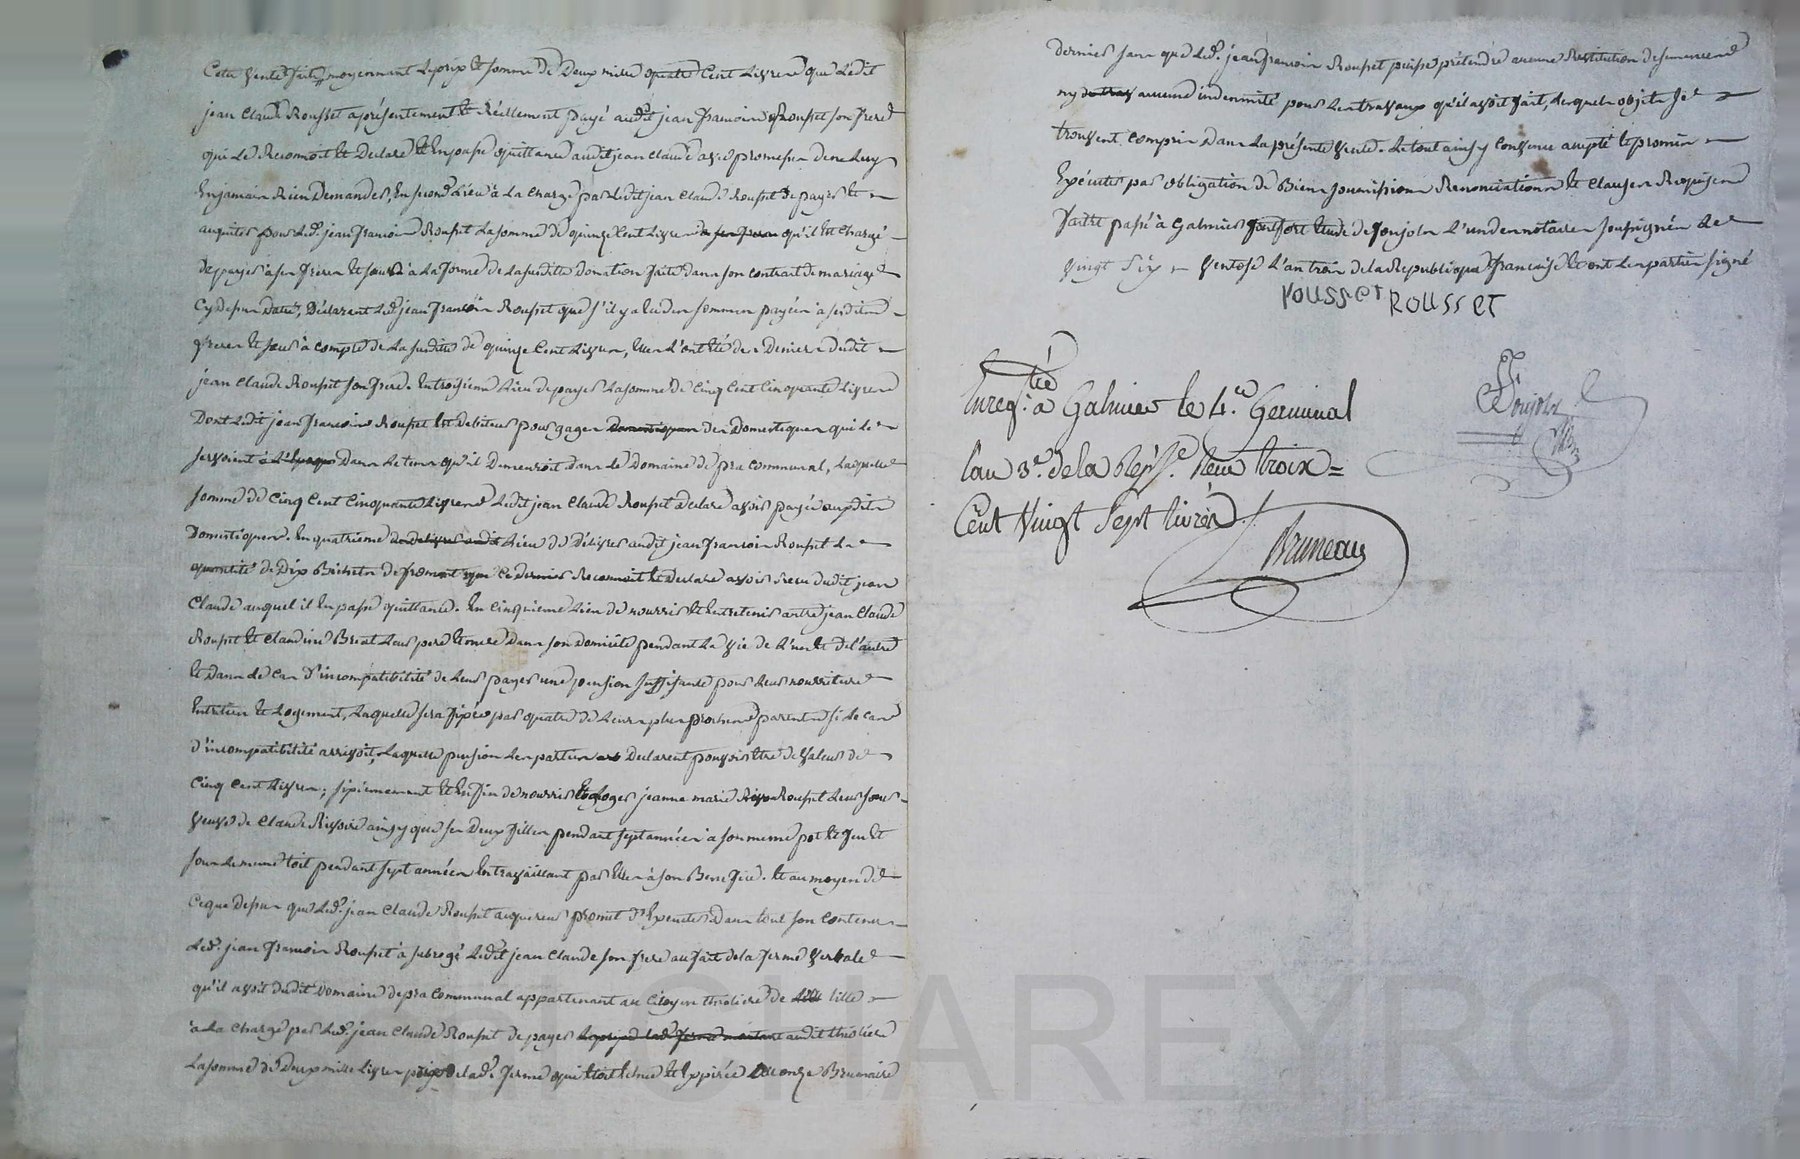 Cette vente faitte moyennant le prix et somme de Deux mille quatre Cent Livres que Ledit
jean Claude Rousset a présentement et réellement payé audit jean francois Rousset son frere
qui le Reconnoit et Declare et En passe quittance audit jean claude avec promesse de ne Luy
En jamais Rien Demander, En second Lieu à La charge par Ledit jean Claude Rousset de payer et
aquiter pour Led. jean francois Rousset La somme de quinze Cent Livres qu'il Est Chargé
De payer à ses freres et sœur à La forme de La susditte Donation faitte dans son contrat de mariage
Cy dessus Datté, Déclarant Led. jean francois Rousset que s'il y a Eu des sommes payées à sesdits
freres et sœur à compte de La susditte de quinze Cent Livres, Elles L'ont Eté des Deniers dudit
jean Claude Rousset son frere. En troisieme Lieu de payer La somme de Cinq Cent Cinquante Livres
Dont Ledit jean francois Rousset Est debiteur pour gages des Domestiques qui Le
servoient Dans Le tems qu'il Demeuroit Dans Le Domaine de pra communal, Laquelle
somme de Cinq Cent Cinquante Livres Ledit jean Claude Rousset declare avoir payée auxdits
Domestiques. En quatrieme Lieu de Délivrer audit jean francois Rousset La
quantité de Dix Bichets de froment que Ce dernier Reconnoit et Declare avoir Recu dudit jean
Claude auquel il En passe quittance. En Cinquieme Lieu de nourrir et Entretenir autre jean Claude
Rousset et Claudine Breat Leur pere et mere Dans son Domicile pendant La vie de L'un et de l'autre
Et Dans Le cas D'incompatibilité de Leur payer une pension suffisante pour Leur nourriture
Entretien et Logement, Laquelle sera fixée par quatre de Leurs plus proches parents si Le cas
d'incompatibilité arrivoit, Laquelle pension Les parties Declarent pouvoir Etre de valeur de
Cinq Cent Livres; sixiemement et Enfin de nourrir et Loger jeanne marie Rousset Leur sœur
veuve de Claude Rivoire ainsy que ses Deux filles pendant sept années à son meme pot et feu et
sous Le meme toit pendant sept années En travaillant par Elles à son Benefice. Et au moyen de
Ce que Dessus que Led. jean Claude Rousset aquereur promet D'Executer Dans tout son Contenu
Led. jean francois Rousset à subrogé Ledit jean Claude son frere au fait de la ferme verbale
qu'il avoit dudit Domaine de pra Communal appartenant au Citoyen thiolière de Lille
à La charge par Led. jean Claude Rousset de payer audit thiolière
La somme de Deux mille Livres prix de lad. ferme qui Etoit Echue et Expirée Le onze Brumaire
dernier sans que Led. jean francois Rousset puisse prétendre aucune Restitution de semences
ny aucune indemnité pour Les travaux qu'il avoit fait, Lesquels objets se
trouvent compris Dans La présente vente. Le tout ainsy convenu accepté et promis
Exécuter par obligation de Biens soumissions Renonciations et Clauses Requises
faitte passé à Galmier Etude de Joujoln L'un des notaires soussignés Le
vingt six ventose L'an trois de la Republique francaise et ont Les parties signé
Rousset ROUSSET
Enreg.té à Galmier le 4.e Germinal
lan 3.e de la Rép.e Reçu troix =
Cent Vingt Sept livres.
Bruneau
CHAREYRON